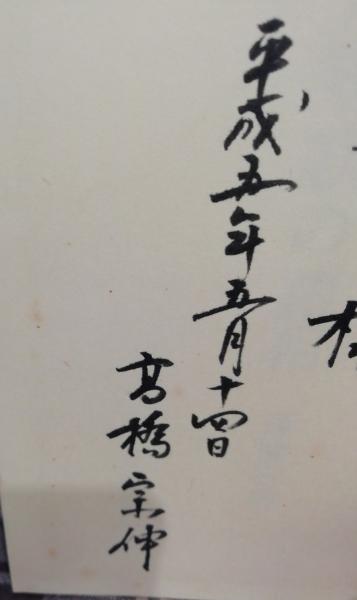 平成五年五月十四日
髙橋宗仲